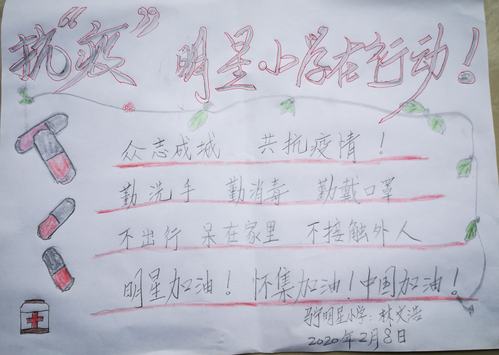 抗“疫” 明星小学在行动！
众志成城 共抗疫情！
勤洗手 勤消毒 勤戴口罩
不出行 呆在家里 不接触外人
明星加油！怀集加油！中国加油！
明星小学：林文浩
2020年2月8日